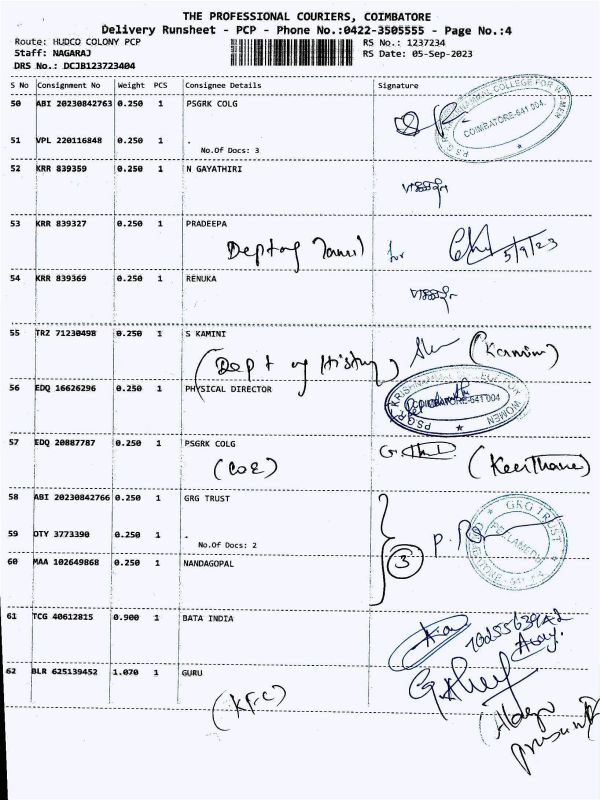 THE PROFESSIONAL COURIERS, COIMBATORE
Delivery Runsheet - PCP - Phone No.:0422-3505555 - Page No.:4
Route: HUDCO COLONY PCP RS No.: 1237234
Staff: NAGARAJ RS Date: 05-Sep-2023
DRS No.: DCJB123723404
S No Consignment No Weight PCS Consignee Details Signature
50 ABI 20230842763 0.250 1 PSGRK COLG
COIMBATORE-641 004.
51 VPL 220116848 0.250 1 .
No.Of Docs: 3
52 KRR 839359 0.250 1 N GAYATHIRI
53 KRR 839327 0.250 1 PRADEEPA
Dept of Tamil for 5/9/23
54 KRR 839369 0.250 1 RENUKA
55 TRZ 71230498 0.250 1 S KAMINI
(Dept of History) (Kamini)
56 EDQ 16626296 0.250 1 PHYSICAL DIRECTOR
57 EDQ 20887787 0.250 1 PSGRK COLG
(COE) (Keerthana)
58 ABI 20230842766 0.250 1 GRG TRUST
GRG TRUST
59 DTY 3773390 0.250 1 .
No.Of Docs: 2
3
60 MAA 102649868 0.250 1 NANDAGOPAL
61 TCG 40612815 0.900 1 BATA INDIA
62 BLR 625139452 1.070 1 GURU
(KFC)